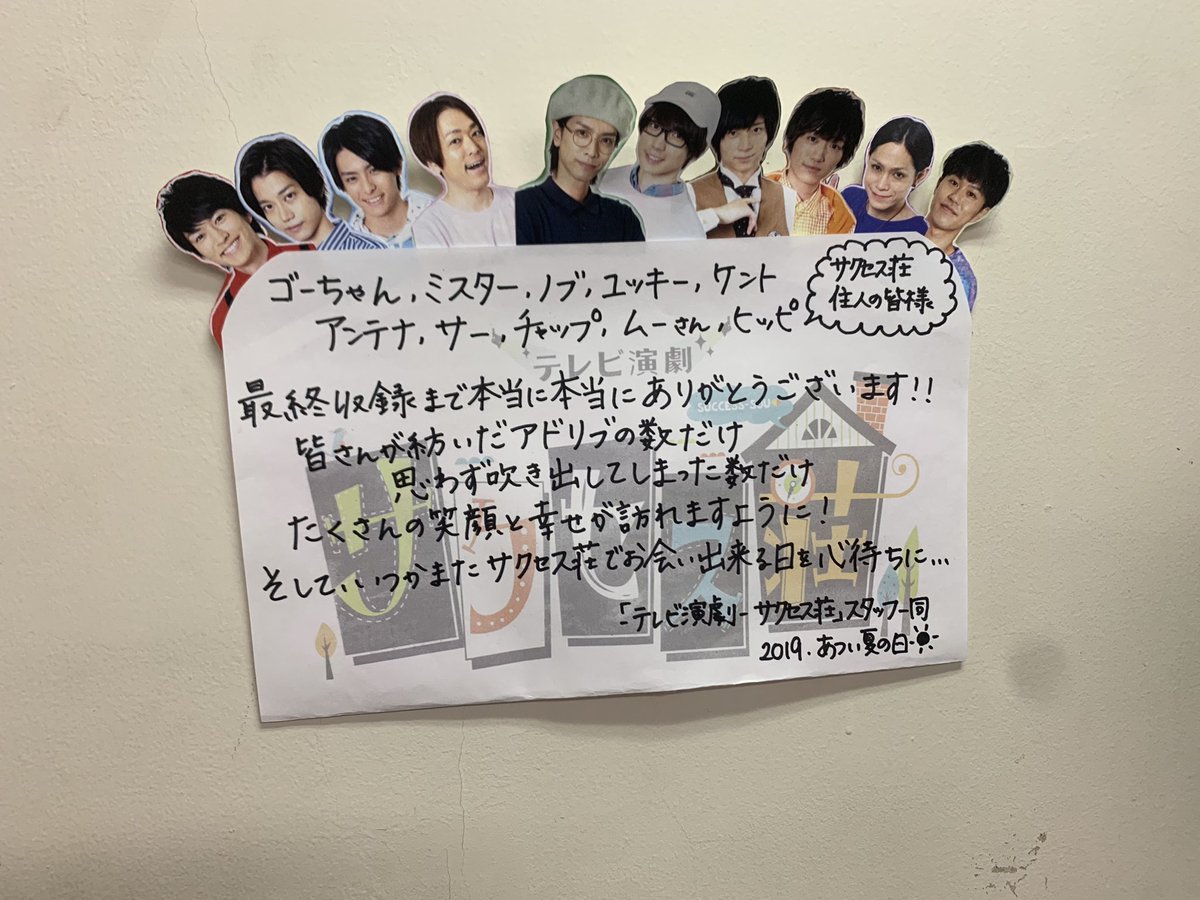 ゴーちゃん,ミスター,ノブ,ユッキー,ケント
アンテナ,サー,チャップ,ムーさん,ヒッピ
サクセス荘
住人の皆様
テレビ演劇
最終収録まで本当に本当にありがとうございます!!
SUCCESS-SOU
皆さんが紡いだアドリブの数だけ
思わず吹き出してしまった数だけ
たくさんの笑顔と幸せが訪れますように!
そして、いつかまたサクセス荘でお会い出来る日を心待ちに...
サクセス荘
「テレビ演劇-サクセス荘」スタッフ一同
2019.あつい夏の日